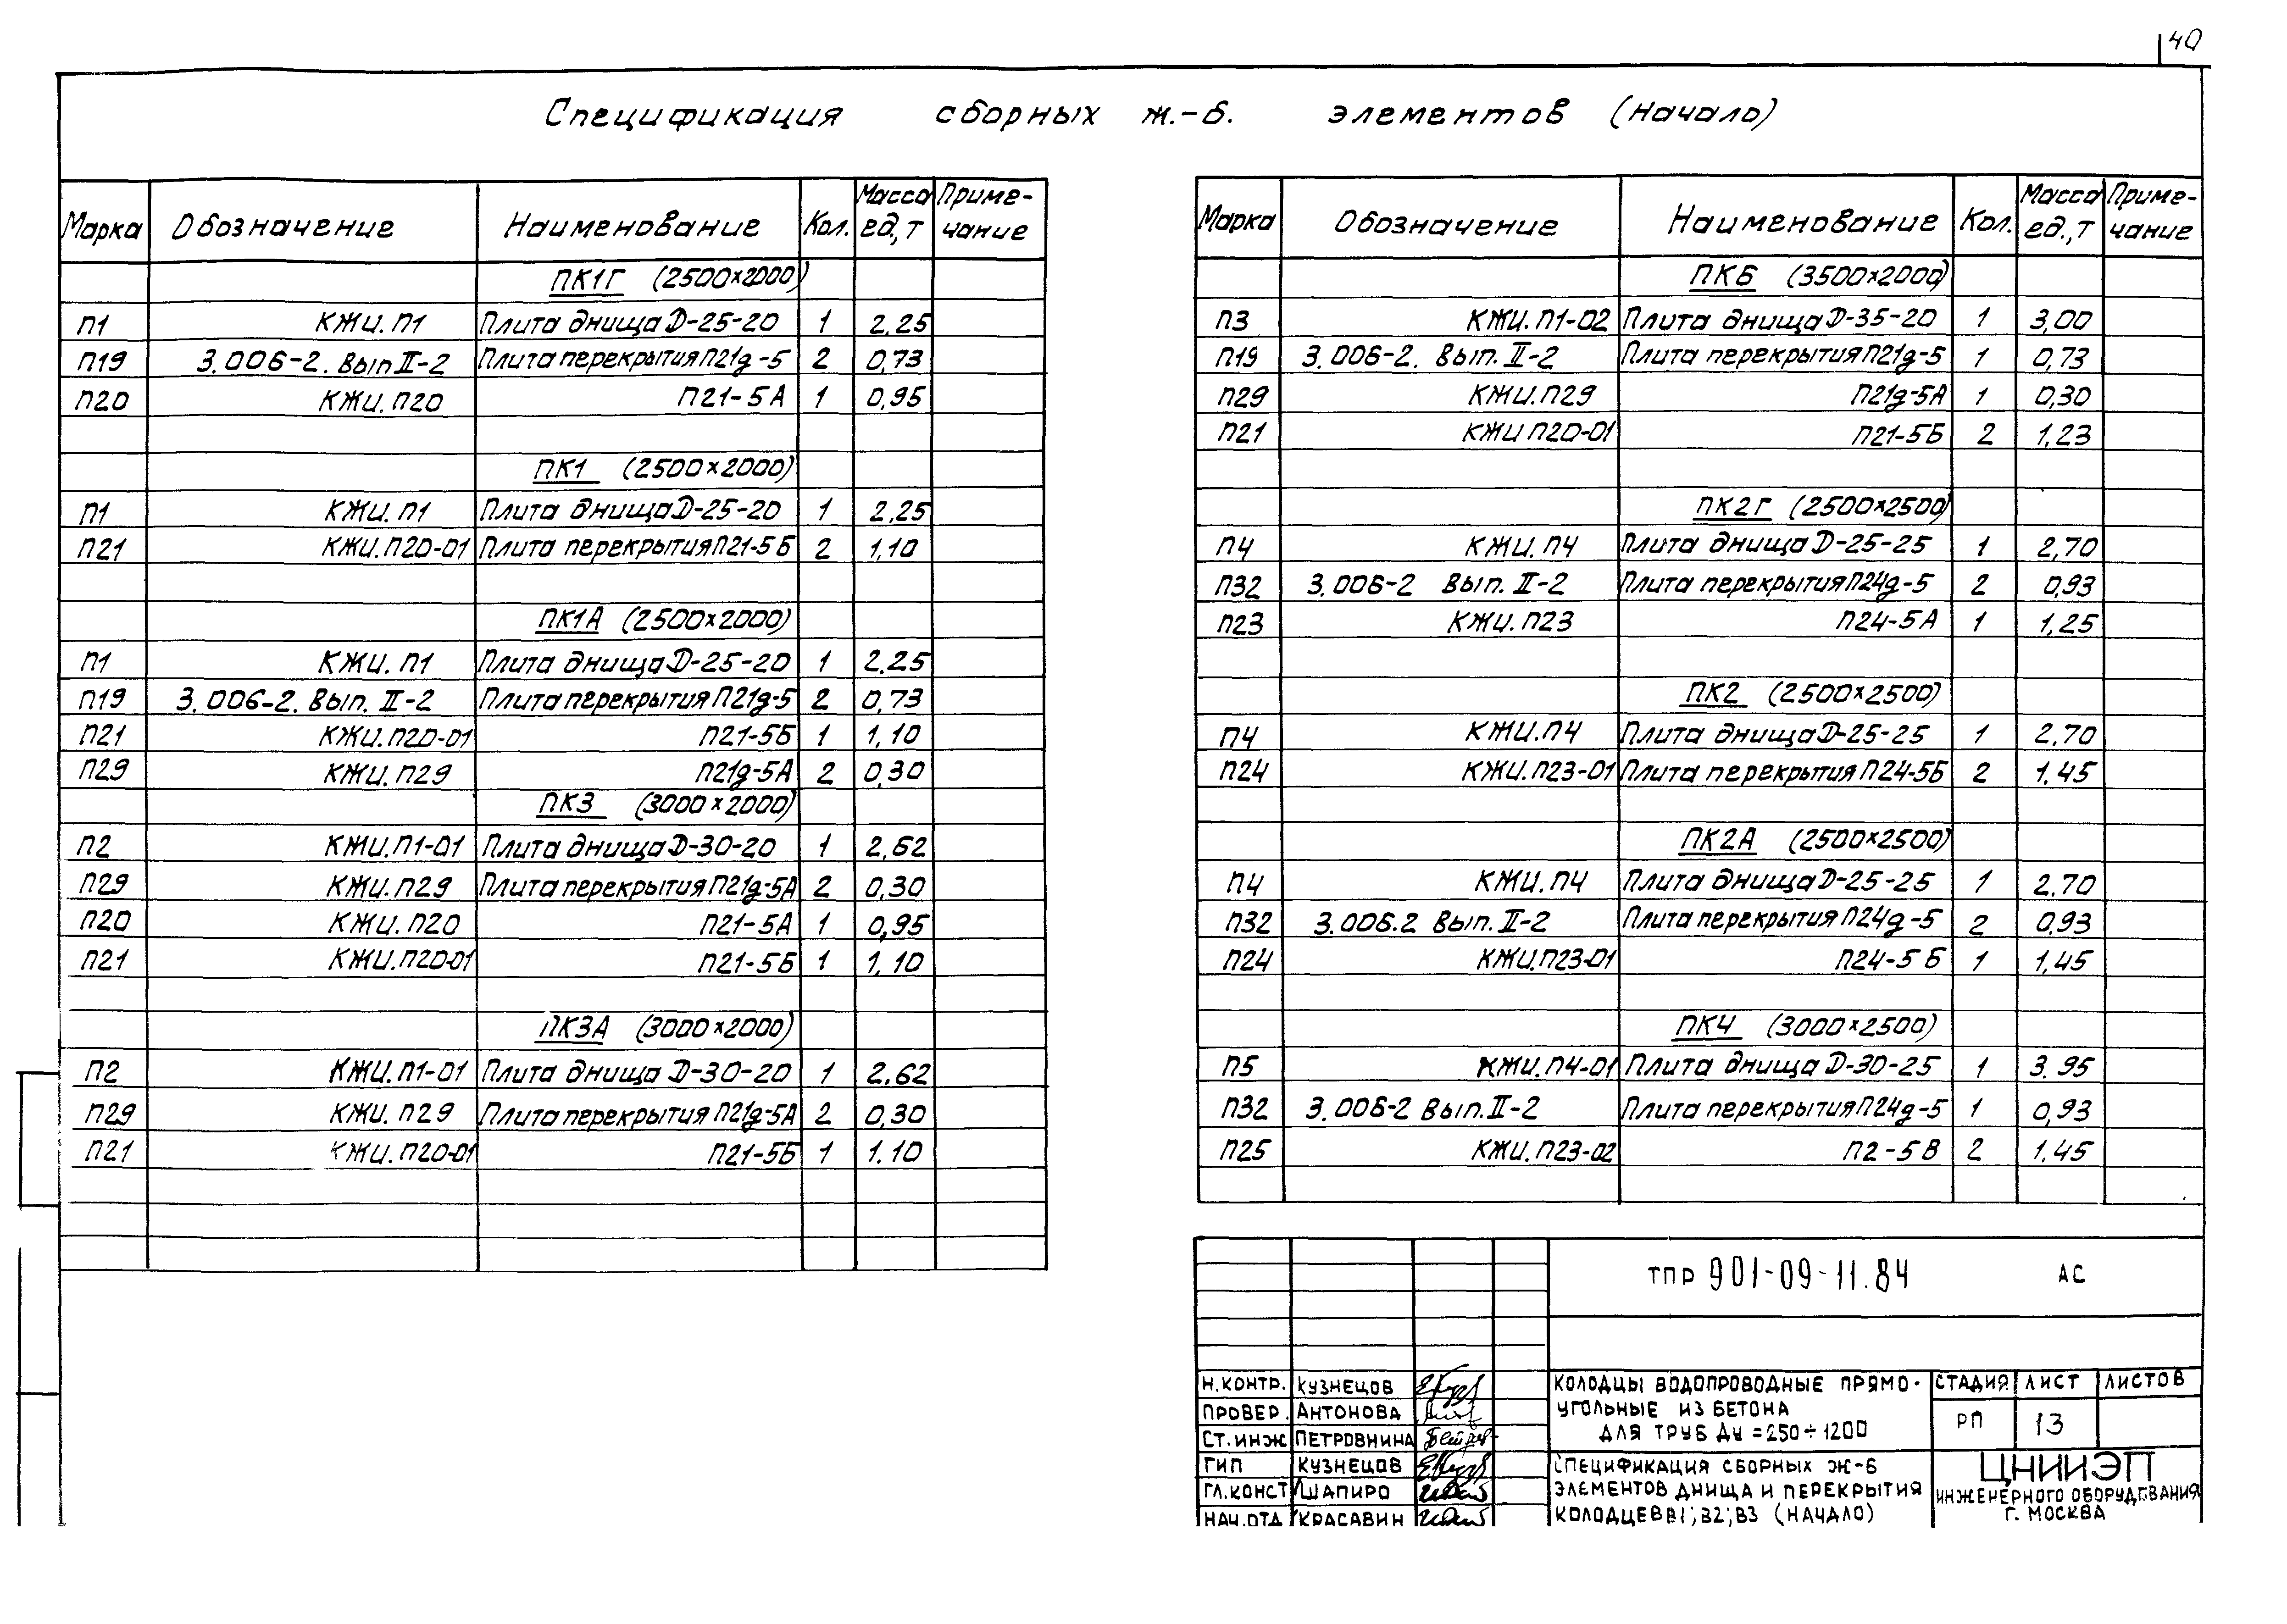 40
Спецификация сборных ж.-б. элементов (начало)
Марка Обозначение Наименование Кол. Масса ед., т Приме-чание
ПК1Г (2500×2000)
П1 КЖИ. П1 Плита днища Д-25-20 1 2.25
П19 3.006-2. Вып II-2 Плита перекрытия П21g-5 2 0,73
П20 КЖИ. П20 П21-5А 1 0,95
ПК1 (2500×2000)
П1 КЖИ. П1 Плита днища Д-25-20 1 2.25
П21 КЖИ. П20-01 Плита перекрытия П21-5Б 2 1,10
ПК1А (2500×2000)
П1 КЖИ. П1 Плита днища Д-25-20 1 2.25
П19 3.006-2. Вып. II-2 Плита перекрытия П21g-5 2 0,73
П21 КЖИ. П20-01 П21-5Б 1 1,10
П29 КЖИ. П29 П21g-5А 2 0,30
ПК3 (3000×2000)
П2 КЖИ. П1-01 Плита днища Д-30-20 1 2,62
П29 КЖИ. П29 Плита перекрытия П21g-5А 2 0,30
П20 КЖИ. П20 П21-5А 1 0,95
П21 КЖИ. П20-01 П21-5Б 1 1,10
ПК3А (3000×2000)
П2 КЖИ. П1-01 Плита днища Д-30-20 1 2,62
П29 КЖИ. П29 Плита перекрытия П21g-5А 2 0,30
П21 КЖИ. П20-01 П21-5Б 1 1.10
Марка Обозначение Наименование Кол. Масса ед., т Приме-чание
ПКБ (3500×2000)
П3 КЖИ. П1-02 Плита днища Д-35-20 1 3,00
П19 3.006-2. Вып. II-2 Плита перекрытия П21g-5 1 0,73
П29 КЖИ. П29 П21g-5А 1 0,30
П21 КЖИ П20-01 П21-5Б 2 1,23
ПК2Г (2500×2500)
П4 КЖИ. П4 Плита днища Д-25-25 1 2,70
П32 3.006-2 Вып. II-2 Плита перекрытия П24g-5 2 0,93
П23 КЖИ. П23 П24-5А 1 1,25
ПК2 (2500×2500)
П4 КЖИ. П4 Плита днища Д-25-25 1 2,70
П24 КЖИ. П23-01 Плита перекрытия П24-5Б 2 1.45
ПК2А (2500×2500)
П4 КЖИ. П4 Плита днища Д-25-25 1 2.70
П32 3.006.2 Вып. II-2 Плита перекрытия П24g-5 2 0,93
П24 КЖИ. П23-01 П24-5Б 1 1,45
ПК4 (3000×2500)
П5 КЖИ. П4-01 Плита днища Д-30-25 1 3.95
П32 3.006-2 Вып. II-2 Плита перекрытия П24g-5 1 0,93
П25 КЖИ. П23-02 П2-5В 2 1.45
ТПР 901-09-11.84 АС
Н.КОНТР. КУЗНЕЦОВ
ПРОВЕР. АНТОНОВА
СТ.ИНЖ ПЕТРОВНИНА
ГИП КУЗНЕЦОВ
ГЛ.КОНСТ ШАПИРО
НАЧ.ОТД КРАСАВИН
КОЛОДЦЫ ВОДОПРОВОДНЫЕ ПРЯМО-
УГОЛЬНЫЕ ИЗ БЕТОНА
ДЛЯ ТРУБ Ду = 250÷1200
СТАДИЯ ЛИСТ ЛИСТОВ
РП 13
СПЕЦИФИКАЦИЯ СБОРНЫХ Ж-Б
ЭЛЕМЕНТОВ ДНИЩА И ПЕРЕКРЫТИЯ
КОЛОДЦЕВ В1; В2; В3 (НАЧАЛО)
ЦНИИЭП
ИНЖЕНЕРНОГО ОБОРУДОВАНИЯ
Г. МОСКВА